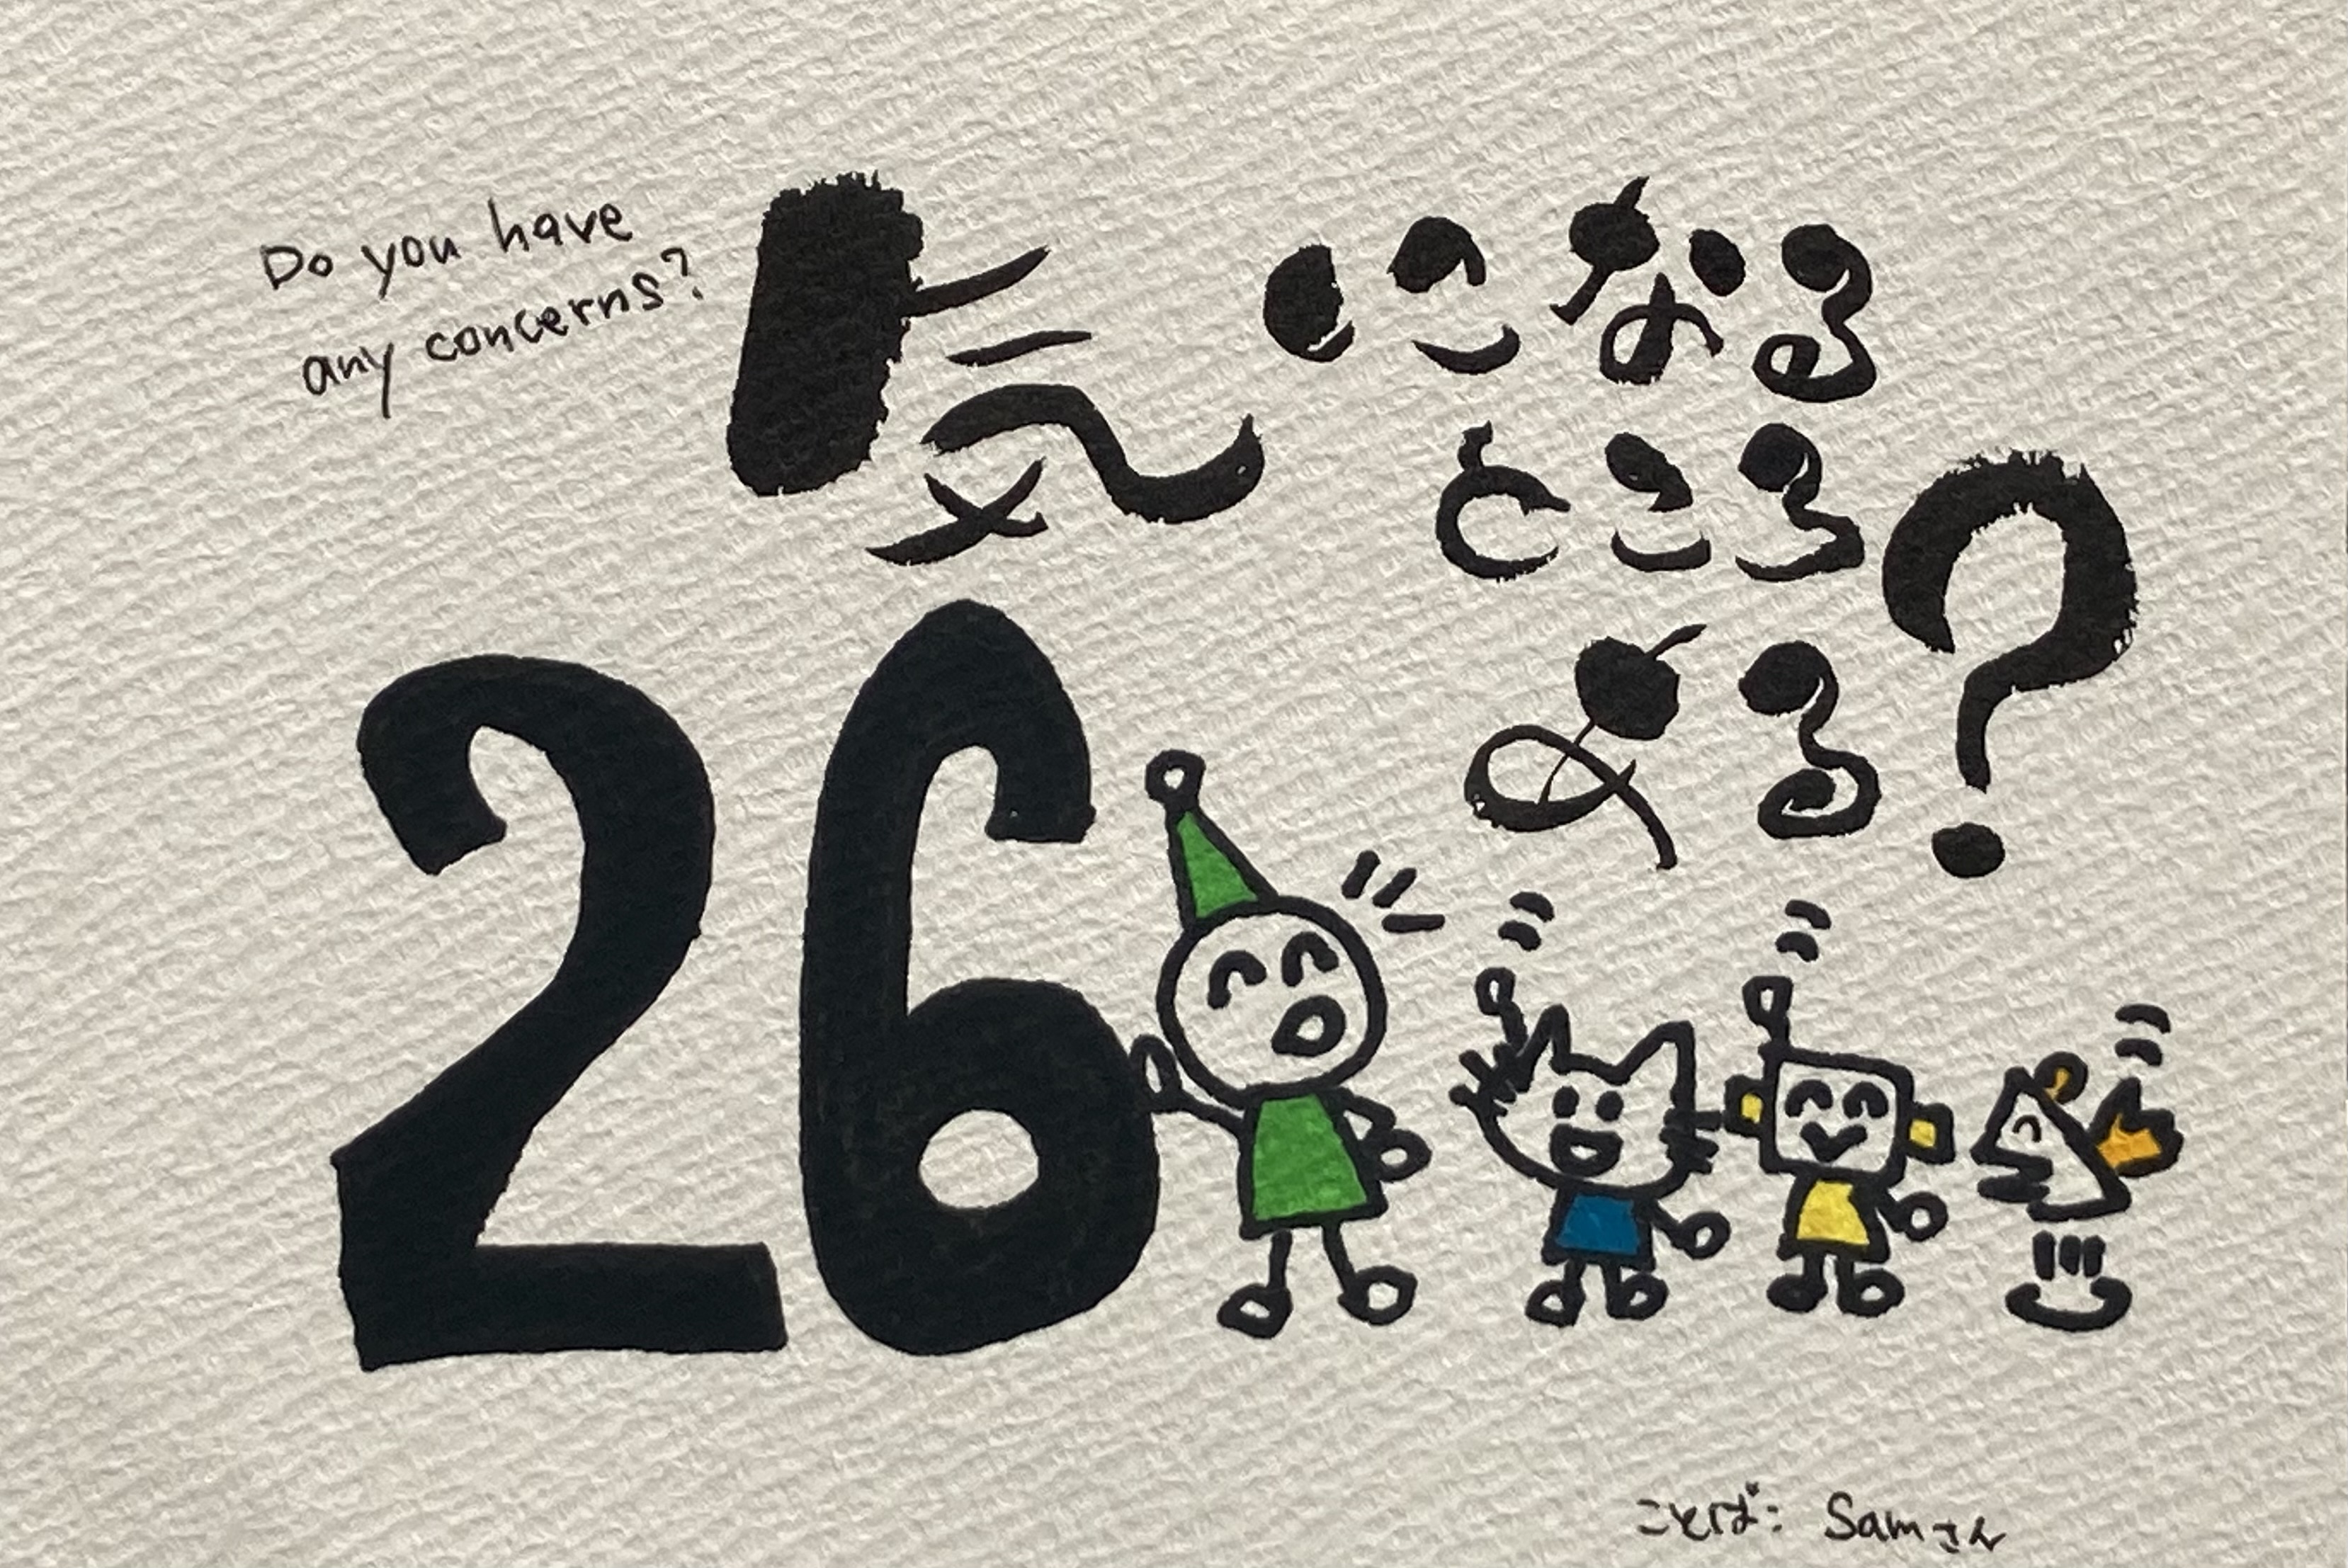 Do you have
any concerns?
気になる
ところ
ある?
26
ことば: Samさん